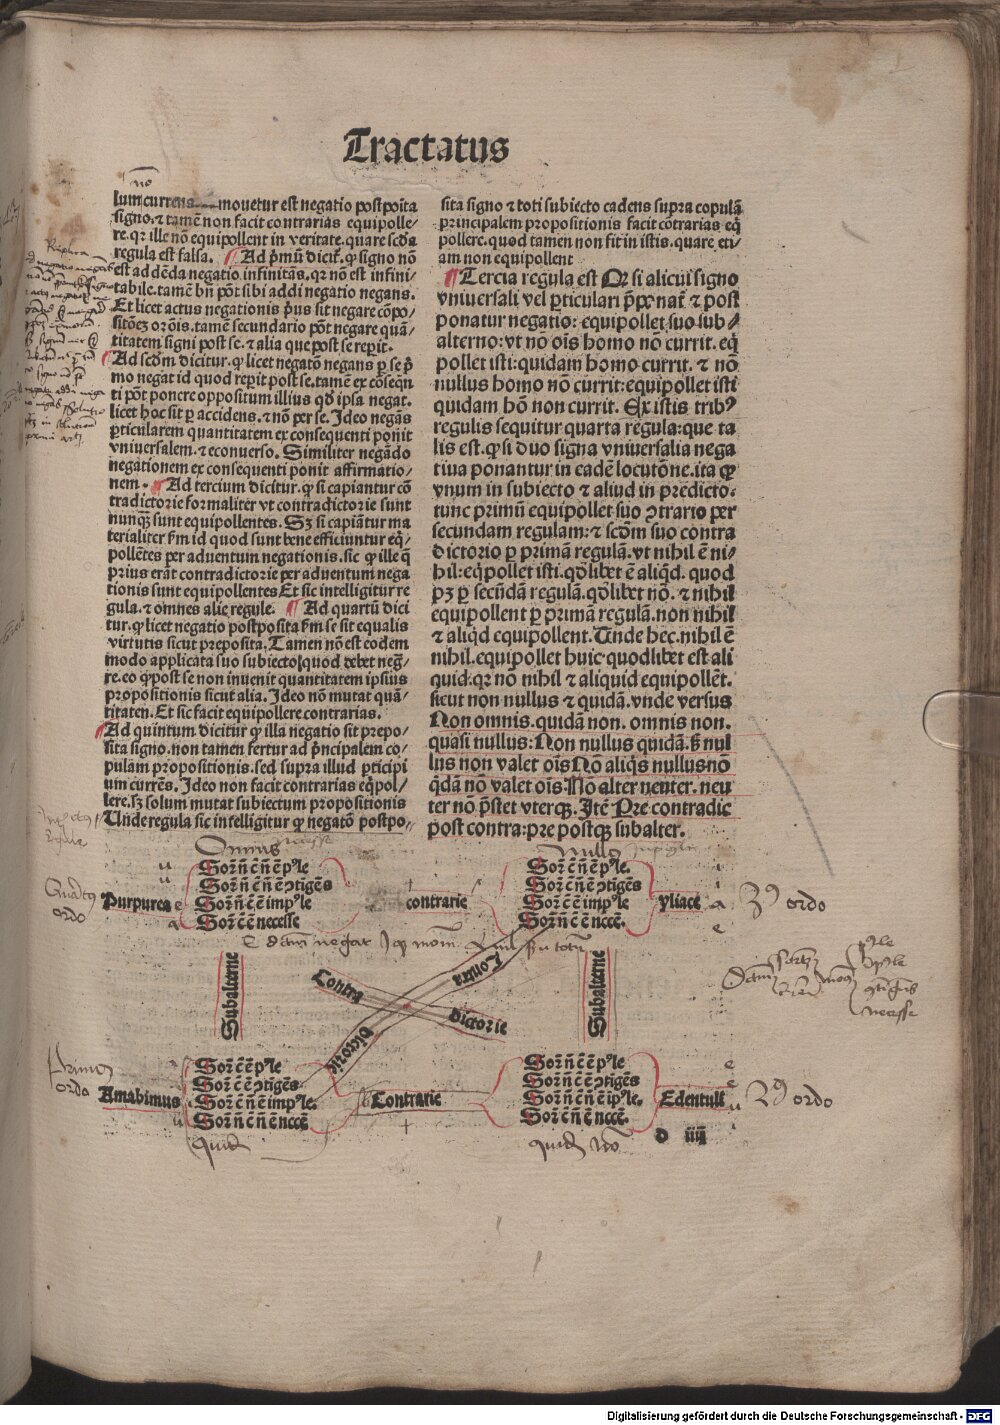 Tractatus
lum currens mouetur est negatio postposita
signo. ⁊ tamẽ non facit contrarias equipolle/
re. qꝛ ille nõ equipollent in veritate. quare scďa
regula est falsa. Ad pꝛimũ dicit̃. ꝙ signo nõ
est addẽda negatio infinitãs. qꝛ nõ est infini/
tabile. tamẽ bñ põt sibi addi negatio negans.
Et licet actus negationis pꝛius sit negare cõpo/
sitõeꝫ oꝛõis. tamẽ secundario põt negare quã/
titatem signi post se. ⁊ alia que post se reperit.
Ad secďm dicitur. ꝙ licet negatõ negans ꝑ se pꝛi
mo negat id quod reperit post se. tamẽ ex cõsequẽ
ti põt ponere oppositum illius qď ipsa negat.
licet hoc sit ꝑ accidens. ⁊ nõ per se. Ideo negãs
ꝑticularem quantitatem ex consequenti ponit
vniuersalem. ⁊ econuerso. Similiter negãdo
negationem ex consequenti ponit affirmatio/
nem. Ad tercium dicitur. ꝙ si capiantur cõ
tradictorie formaliter vt contradictorie sunt
nunqꝫ sunt equipollentes. Sꝫ si capiãtur ma
terialiter fm id quod sunt bene efficiuntur eq̃/
pollẽtes per aduentum negationis. sic ꝙ ille q̃
prius erãt contradictorie per aduentum nega
tionis sunt equipollentes Et sic intelligitur re
gula. ⁊ omnes alie regule. Ad quartũ dici
tur. ꝙ licet negatio postposita fm se sit equalis
virtutis sicut preposita. Tamen nõ est eodem
modo applicata suo subiecto quod debet neg̃/
re. eo ꝙ post se non inuenit quantitatem ipsius
propositionis sicut alia. Ideo nõ mutat quã/
titatem. Et sic facit equipollere contrarias.
Ad quintum dicitur ꝙ illa negatio sit prepo/
sita signo. non tamen fertur ad pꝛincipalem co/
pulam propositionis. sed supra illud ꝑticipi
um currẽs. Ideo non facit contrarias eq̃pol/
lere. sꝫ solum mutat subiectum propositionis
Unde regula sic intelligitur ꝙ negatõ postpo/
sita signo ⁊ toti subiecto cadens supra copulã
principalem propositionis facit cõtrarias eq̃
pollere. quod tamen non fit in istis. quare eti/
am non equipollent
Tercia regula est Qꝛ si alicui signo
vniuersali vel ꝑticulari pꝛeponat̃ ⁊ post
ponatur negatio: equipollet suo sub/
alterno: vt nõ oĩs homo nõ currit. eq̃
pollet isti: quidam homo currit. ⁊ nõ
nullus homo nõ currit: equipollet isti
quidam hõ non currit. Ex istis tribꝰ
regulis sequitur quarta regula: que ta
lis est. ꝙ si duo signa vniuersalia nega
tiua ponantur in eadẽ locutõne. ita ꝙ
vnum in subiecto ⁊ aliud in predicto:
tunc primũ equipollet suo ↄtrario per
secundam regulam: ⁊ scďm suo contra
dictorio ꝑ primã regulã. vt nihil ẽ ni/
hil: eq̃pollet isti. qďlibet ẽ aliqď. quod
pꝫ ꝑ secũdã regulã. qďlibet nõ. ⁊ nihil
equipollent ꝑ primã regulã. non nihil
⁊ aliqď equipollent. Unde hec. nihil ẽ
nihil. equipollet huic quodlibet est ali
quid. qꝛ nõ nihil ⁊ aliquid equipollẽt.
sicut non nullus ⁊ quidã. vnde versus
Non omnis. quidã non. omnis non.
quasi nullus: Non nullus quidã. sꝫ nul
lus non valet oĩs Nõ aliqs nullus nõ
qďã nõ valet oĩs. Nõ alter neuter. neu
ter nõ pꝛestet vterqꝫ. Itẽ Pre contradic
post contra: pre postqꝫ subalter.
Omnis
Nullꝰ
Soꝛ.ñ ẽ ñ ẽ pꝰle
Soꝛ.ñ ẽ ñ ẽ ↄtigẽs
Soꝛ.ñ ẽ ẽ impꝰle
Soꝛ.ñ ẽ ẽ necesse
Purpurea
contrarie
Soꝛ.ẽ ñ ẽ pꝰle.
Soꝛ.ẽ ñ ẽ ↄtigẽs
Soꝛ.ẽ ẽ impꝰle
Soꝛ.ñ ẽ ẽ nccẽ.
yliace
3ꝰ ordo
Quartꝰ
ordo
Subalterne
Contra
dictorie
Contra
dictorie
Subalterne
necesse
Primus
ordo
Amabimus
Soꝛ.ẽ ẽ pꝰle
Soꝛ.ẽ ẽ ↄtigẽs
Soꝛ.ẽ ñ ẽ impꝰle.
Soꝛ.ñ ẽ ñ ẽ nccẽ
Contrarie
Soꝛ.ñ ẽ ẽ pꝰle
Soꝛ.ñ ẽ ẽ ↄtigẽs
Soꝛ.ñ ẽ ñ ẽ ipꝰle.
Soꝛ.ẽ ñ ẽ nccẽ.
Edentuli
2ꝰ ordo
d iiij
Digitalisierung gefördert durch die Deutsche Forschungsgemeinschaft - DFG